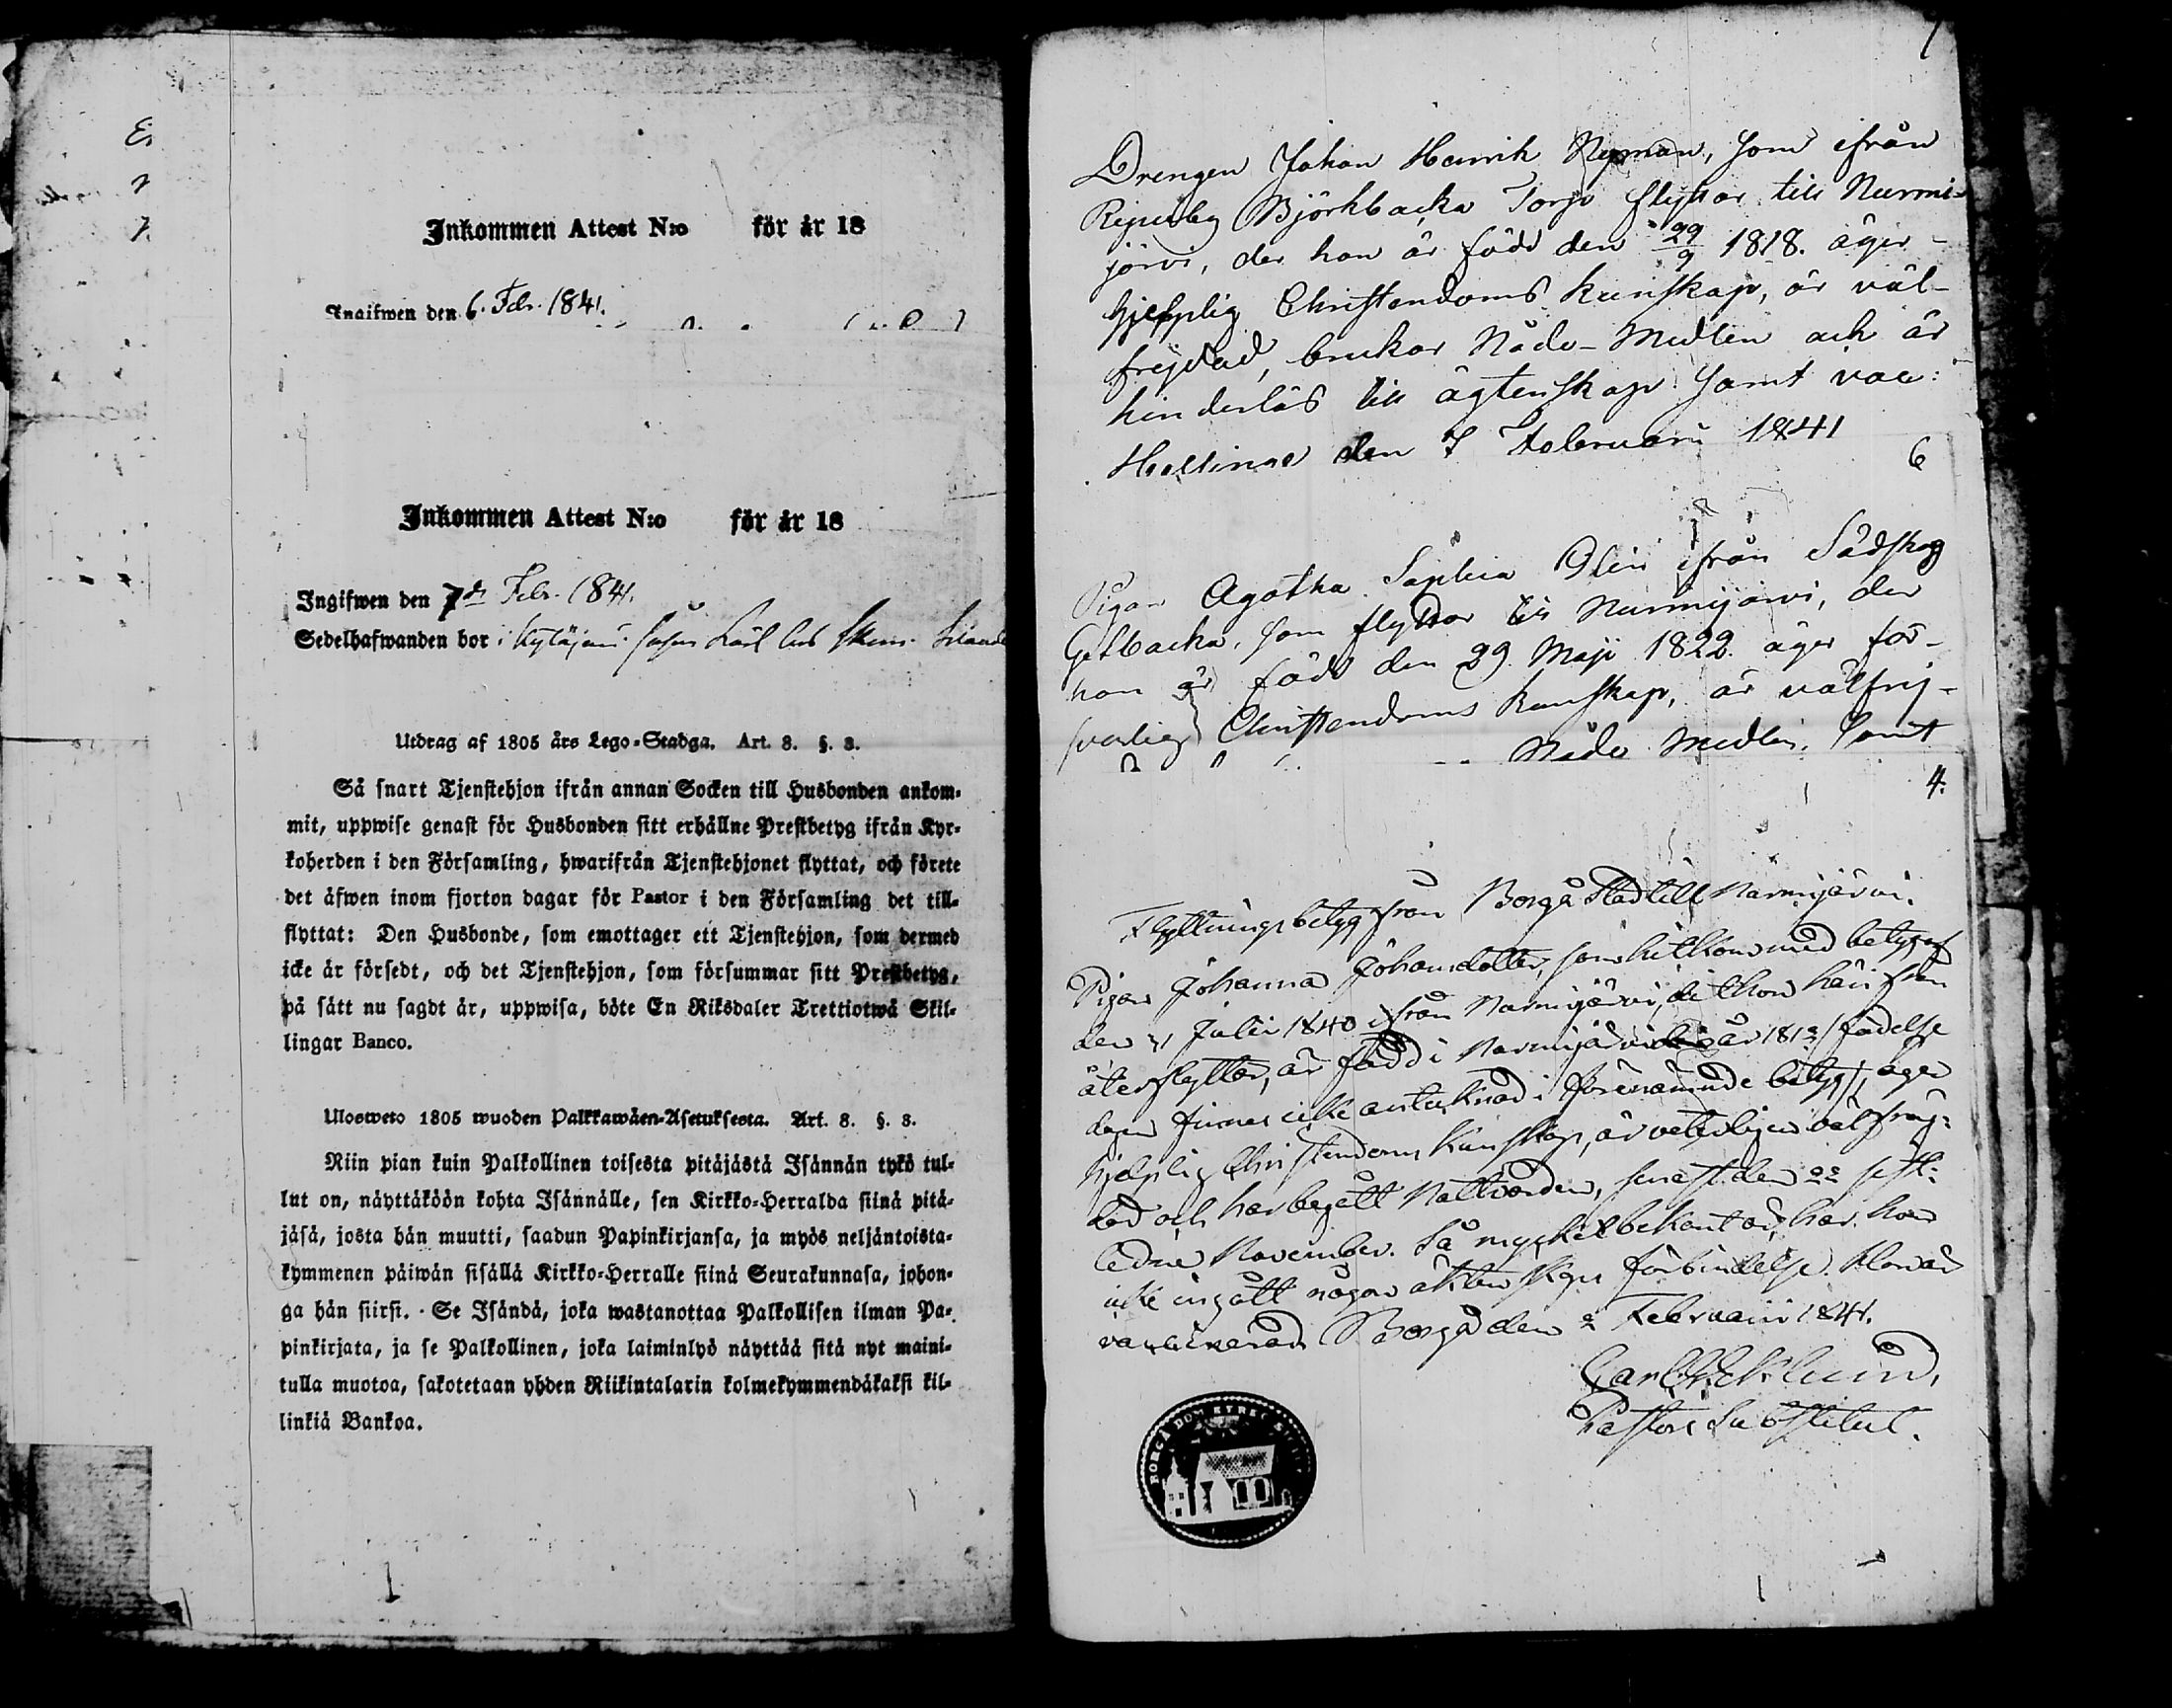 Inkommen Attest N:o för år 18
Ingifwen den 6. Febr. 1841.
Inkommen Attest N:o för år 18
Ingifwen den 7de Febr. 1841.
Sedelhafwanden bor i Kytäjärvi
Utdrag af 1805 års Lego-Stadga. Art. 8. §. 8.
Så snart Tjenstehjon ifrån annan Socken till Husbonden ankom-
mit, uppwise genast för Husbonden sitt erhållne Prestbetyg ifrån Kyr-
koherden i den Församling, hwarifrån Tjenstehjonet flyttat, och förete
det äfwen inom fjorton dagar för Pastor i den Församling det till-
flyttat: Den Husbonde, som emottager ett Tjenstehjon, som dermed
icke är försedt, och det Tjenstehjon, som försummar sitt Prestbetyg,
på sätt nu sagdt är, uppwisa, böte En Riksdaler Trettiotwå Skil-
lingar Banco.
Ulosweto 1805 wuoden Palkkawäen-Asetuksesta. Art. 8. §. 8.
Niin pian kuin Palkollinen toisesta pitäjästä Isännän tykö tul-
lut on, näyttäköön kohta Isännälle, sen Kirkko-Herralda siinä pitä-
jäsä, josta hän muutti, saadun Papinkirjansa, ja myös neljäntoista-
kymmenen päiwän sisällä Kirkko-Herralle siinä Seurakunnasa, johon-
ga hän siirsi. Se Isändä, joka wastanottaa Palkollisen ilman Pa-
pinkirjata, ja se Palkollinen, joka laiminlyö näyttää sitä nyt maini-
tulla muotoa, sakotetaan yhden Riikintalarin kolmekymmendäkaksi kil-
linkiä Bankoa.
7
Drengen Johan Henrik Nyman, som ifrån
Björkbacka Torp flyttar till Nurmi-
järvi, der han är född den 29/9 1818. äger
hjelplig Christendoms kunskap, är väl-
frejdad, brukar Nåde-Medlen och är
hinderlös till ägtenskap samt vac:
den 7 Februarii 1841
6
Pigan Agatha Sophia ifrån Sådskog
Getbacka, som flyttar till Nurmijärvi, der
hon är född den 29 Maji 1822. äger för-
svarlig Christendoms kunskap, är välfrej-
Nåde Medlen, samt
4.
Flyttningsbetyg från Borgå Stad till Nurmijärvi.
Pigan Johanna Johansdotter, som hitkom med betyg af
den Julii 1840 ifrån Nurmijärvi, dit hon härifrån
återflyttar, är född i Nurmijärvi år 1812 (födelse
dagen finnes icke antecknad i förenämnde betyg), äger
hjelplig Christendoms kunskap, är veterligen välfräj-
dad och har begått Nattvarden, senast den 22 sistl:
ledne November. Så mycket bekant är, har hon
icke ingått någon äktenskaps förbindelse. Hon är
vaccinerad. Borgå den 2 Februarii 1841.
Carl Eklund,
Pastors Substitut.
BORGÅ DOM KYRKO